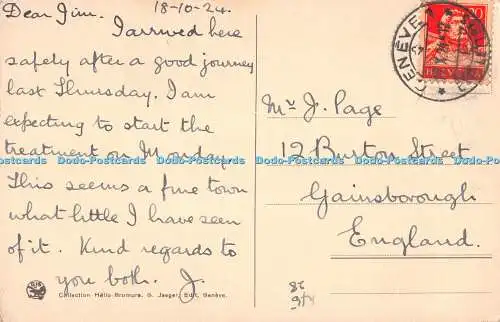 Dear Jim. 18-10-24.
I arrived here
safely after a good journey
last Thursday. I am
expecting to start the
treatment on Monday.
This seems a fine town
what little I have seen
of it. Kind regards to
you both. J.
Collection Hélio-Bromure, G. Jaeger, Edit, Genève.
GENÈVE 1
20
HELVETIA
Mr J. Page
12 Burton Street
Gainsborough
England.
Dodo-Postcards Dodo-Postcards Dodo-Postcards Dodo-Postcards Dodo-Postcards